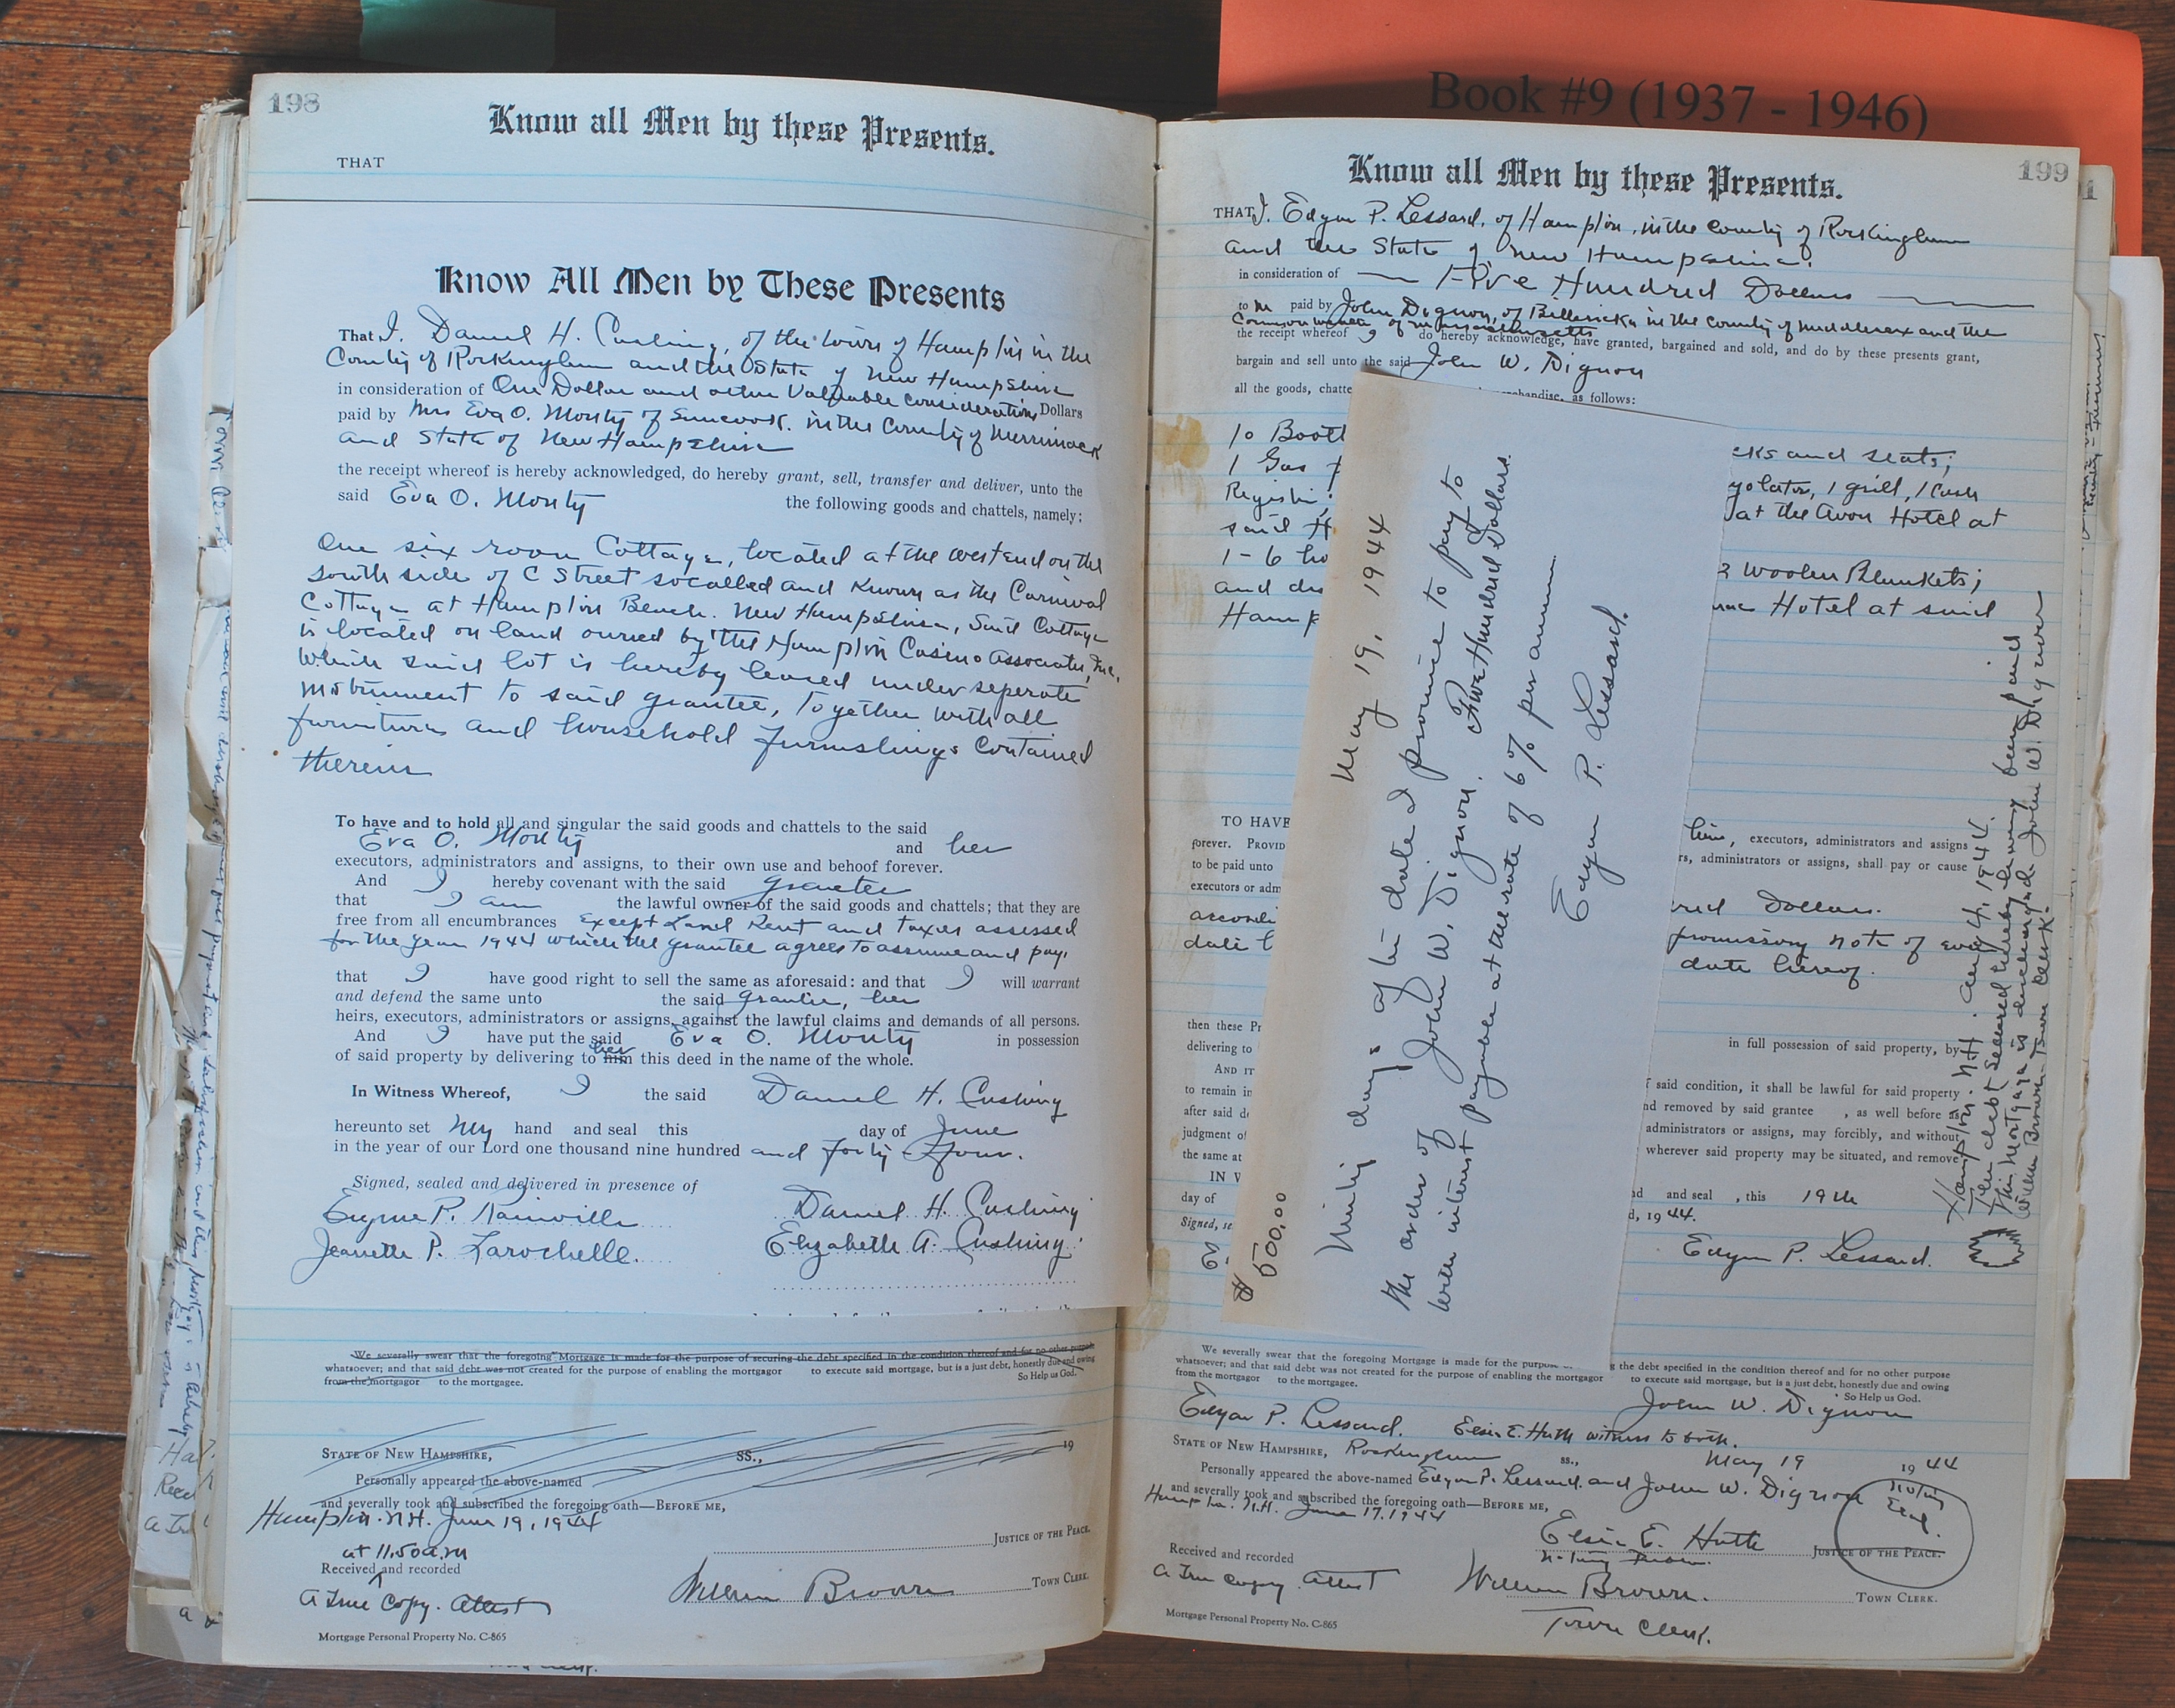 Book #9 (1937 - 1946)
198
Know all Men by these Presents.
THAT
Know All Men by These Presents
That I, Daniel H. Cushing, of the town of Hampton in the
County of Rockingham and the State of New Hampshire
in consideration of One Dollar and other Valuable Considerations Dollars
paid by Mrs Eva O. Monty of Suncook, in the County of Merrimack
and State of New Hampshire
the receipt whereof is hereby acknowledged, do hereby grant, sell, transfer and deliver, unto the
said Eva O. Monty the following goods and chattels, namely:
One six room Cottage, located at the west end on the
south side of C Street socalled and known as the Carnival
Cottage at Hampton Beach. New Hampshire, Said Cottage
is located on land owned by the Hampton Casino Associates, Inc.
which said lot is hereby leased under seperate
instrument to said grantee, together with all
furniture and household furnishings contained
therein
To have and to hold all and singular the said goods and chattels to the said
Eva O. Monty and her
executors, administrators and assigns, to their own use and behoof forever.
And I hereby covenant with the said grantee
that I am the lawful owner of the said goods and chattels; that they are
free from all encumbrances except Land Rent and taxes assessed
for the year 1944 which the grantee agrees to assume and pay,
that I have good right to sell the same as aforesaid: and that I will warrant
and defend the same unto the said grantee, her
heirs, executors, administrators or assigns, against the lawful claims and demands of all persons.
And I have put the said Eva O. Monty in possession
of said property by delivering to him her this deed in the name of the whole.
In Witness Whereof, I the said Daniel H. Cushing
hereunto set my hand and seal this day of June
in the year of our Lord one thousand nine hundred and forty four.
Signed, sealed and delivered in presence of
Eugene P. Rainville Daniel H. Cushing
Jeannette P. Larochelle. Elizabeth A. Cushing
We severally swear that the foregoing Mortgage is made for the purpose of securing the debt specified in the condition thereof and for no other purpose
whatsoever; and that said debt was not created for the purpose of enabling the mortgagor to execute said mortgage, but is a just debt, honestly due and owing
from the mortgagor to the mortgagee. So Help us God.
STATE OF NEW HAMPSHIRE, SS., 19
Personally appeared the above-named
and severally took and subscribed the foregoing oath—BEFORE ME,
Hampton. N.H. June 19, 1944
JUSTICE OF THE PEACE.
at 11.50 a.m
Received and recorded
A True Copy. Attest William Brown TOWN CLERK.
Mortgage Personal Property No. C-865
199
Know all Men by these Presents.
THAT I, Edgar P. Lessard, of Hampton, in the County of Rockingham
and the State of New Hampshire.
in consideration of Five Hundred Dollars
to me paid by John Dignon, of Billericka in the County of Middlesex and the
Commonwealth of Massachusetts
the receipt whereof I do hereby acknowledge, have granted, bargained and sold, and do by these presents grant,
bargain and sell unto the said John W. Dignon
all the goods, chatte
as follows:
10 Boot
cks and seats;
1 Gas
1 grill, 1 Cash
Registe
at the Avon Hotel at
said H
1-6 ho
2 Woolen Blankets;
and d
Hotel at said
Hamp
$ 500.00
May 19, 1944
Ninety days after date I promise to pay to
the order of John W. Dignon. Five Hundred Dollars.
with interest payable at the rate of 6% per annum
Edgar P. Lessard.
TO HAVE
him, executors, administrators and assigns
forever. PROVID
rs, administrators or assigns, shall pay or cause
to be paid unto
executors or adm
accordi
Dollars.
promissory note of even
date
date hereof.
then these Pr
delivering to
in full possession of said property, by
AND IT
to remain in
said condition, it shall be lawful for said property
after said de
nd removed by said grantee , as well before as
judgment of
administrators or assigns, may forcibly, and without
the same at
wherever said property may be situated, and remove
IN W
nd and seal , this 19th
day of
d, 1944.
Signed, se
Edgar P. Lessard.
Hampton. N.H. Aug 4, 1944.
The debt secured hereby having been paid
This Mortgage is discharged. John W. Dignon
William Brown Town Clerk.
We severally swear that the foregoing Mortgage is made for the purpose the debt specified in the condition thereof and for no other purpose
whatsoever; and that said debt was not created for the purpose of enabling the mortgagor to execute said mortgage, but is a just debt, honestly due and owing
from the mortgagor to the mortgagee. So Help us God.
John W. Dignon
Edgar P. Lessard. Elsie E. Huth witness to both.
STATE OF NEW HAMPSHIRE, Rockingham SS., May 19 1944
Personally appeared the above-named Edgar P. Lessard and John W. Dignon
and severally took and subscribed the foregoing oath—BEFORE ME,
Notary Seal.
Hampton. N.H. June 17. 1944
Elsie E. Huth JUSTICE OF THE PEACE.
Received and recorded
A True Copy. Attest William Brown. TOWN CLERK.
Town Clerk.
Mortgage Personal Property No. C-865